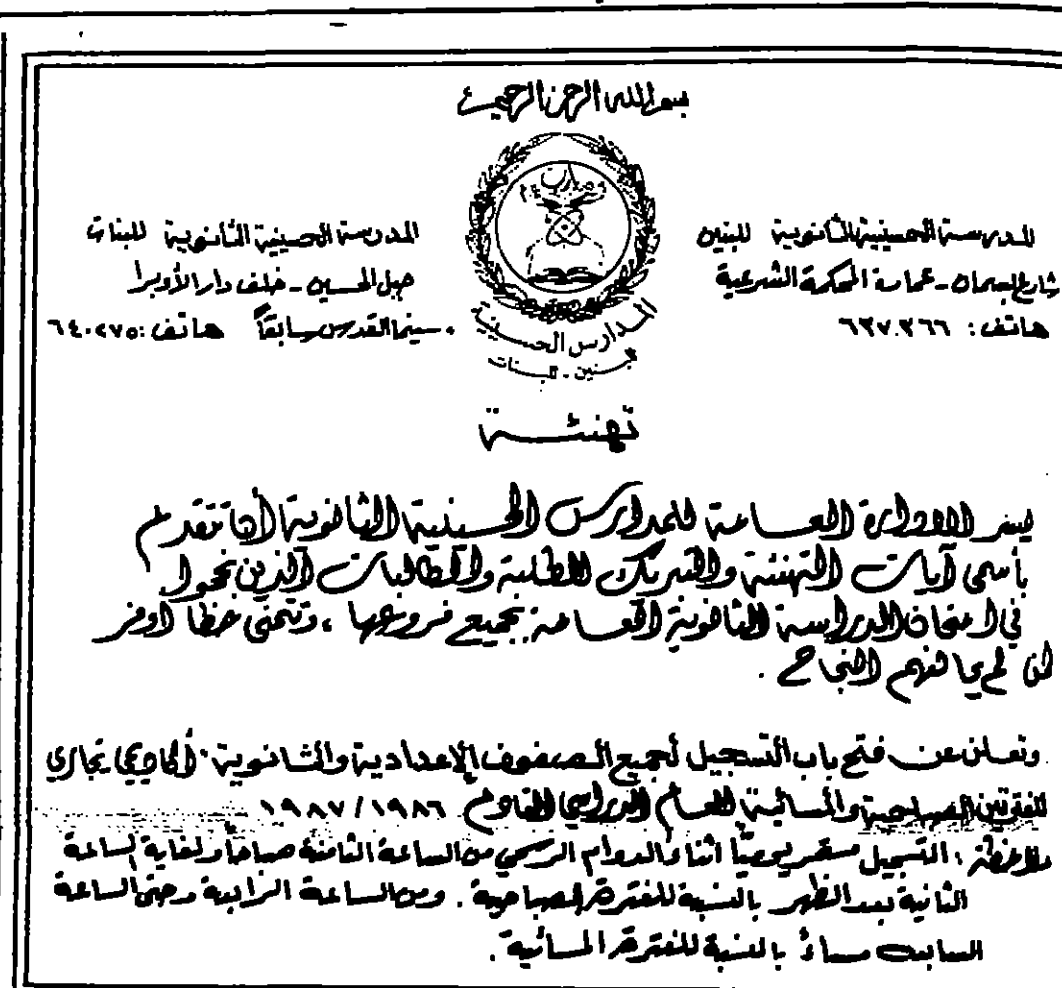 بسم الله الرحمن الرحيم
المدرسة الحسينية الثانوية للبنين
شارع السمان - عمارة المحكمة الشرعية
هاتف: ٦٣٧٢٦٦
المدارس الحسينية
للبنين - للبنات
المدرسة الحسينية الثانوية للبنات
جبل الحسين - خلف دار الأوبرا
سينما القدس سابقاً هاتف: ٦٤٠٢٧٥
تهنئة
يسر الادارة العامة للمدارس الحسينية الثانوية أن تتقدم
بأسمى آيات التهنئة والتبريك للطلبة والطالبات الذين نجحوا
في امتحان الدراسة الثانوية العامة بجميع فروعها ، وتتمنى حظا أوفر
لمن لم يحالفهم النجاح .
وتعلن عن فتح باب التسجيل لجميع الصفوف الإعدادية والثانوية أكاديمي تجاري
للفترتين الصباحية والمسائية للعام الدراسي القادم ١٩٨٧/١٩٨٦
ملاحظة : التسجيل مستمر يومياً أثناء الدوام الرسمي من الساعة الثامنة صباحاً ولغاية الساعة
الثانية بعد الظهر بالنسبة للفترة الصباحية . ومن الساعة الرابعة وحتى الساعة
السابعة مساءً بالنسبة للفترة المسائية .